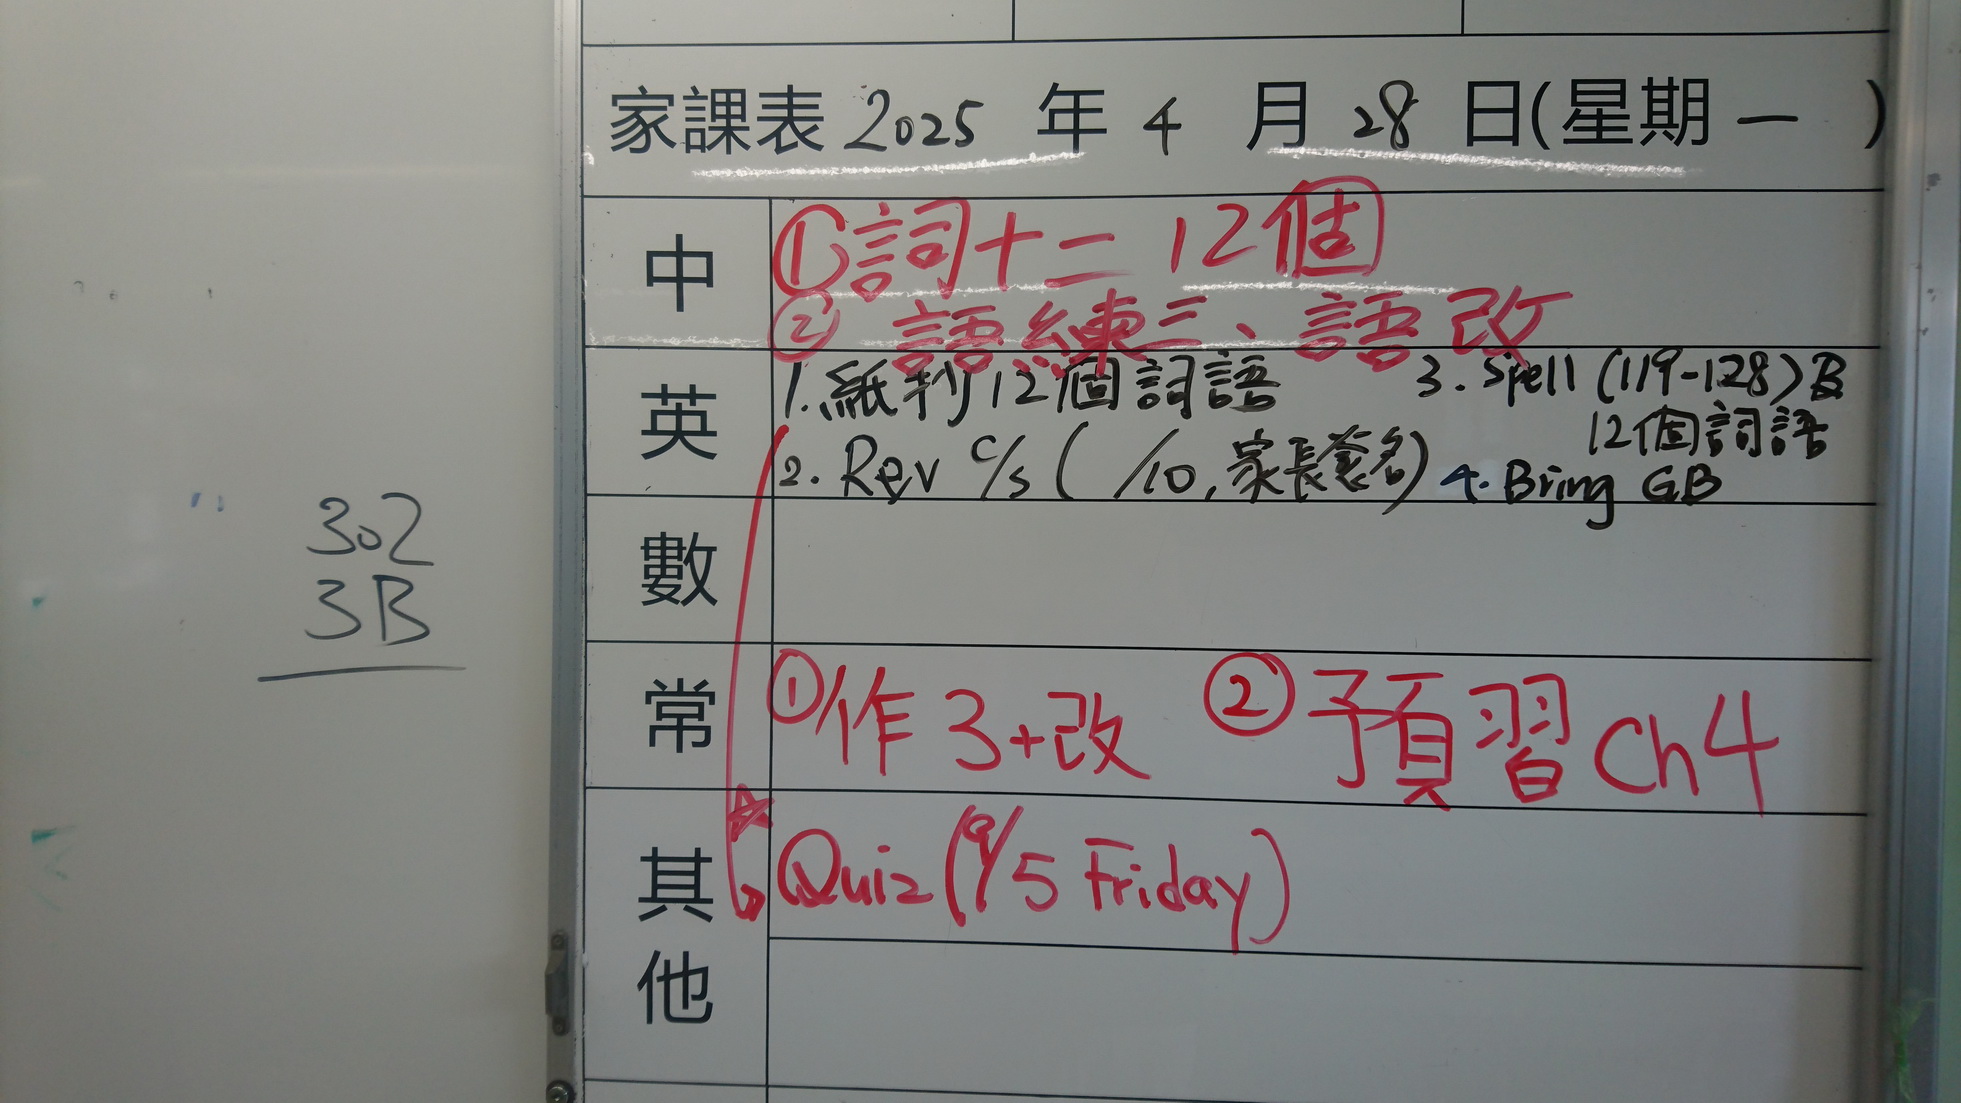 302
3B
家課表 2025 年 4 月 28 日(星期一)
中
①詞十二 12個
② 語練三、語改
英
1. 紙抄12個詞語
3. Spell (119-128) B
12個詞語
2. Rev C/S ( /10, 家長簽名)
4. Bring GB
數
常
①作3+改 ②預習 Ch4
其他
☆ Quiz (9/5 Friday)